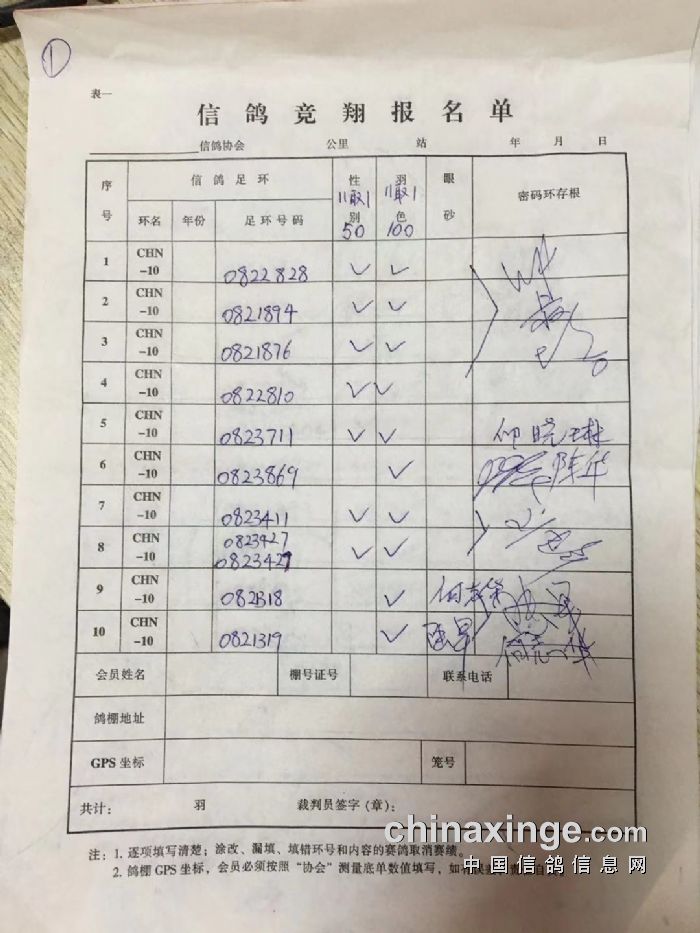 ①
表一
信鸽竞翔报名单
信鸽协会 公里 站 年 月 日
序号 信鸽足环 性别 羽色 眼砂 密码环存根
11取1 11取1
50 100
环名 年份 足环号码
1 CHN-10 0822828 ✓ ✓
2 CHN-10 0821894 ✓ ✓
3 CHN-10 0821876 ✓ ✓
4 CHN-10 0822810 ✓ ✓
5 CHN-10 0823711 ✓ ✓
6 CHN-10 0823869 ✓
7 CHN-10 0823411 ✓ ✓
8 CHN-10 0823427 ✓ ✓
0823427
9 CHN-10 ✓
10 CHN-10 0821319 ✓
会员姓名 棚号证号 联系电话
鸽棚地址
GPS 坐标 笼号
共计: 羽 裁判员签字(章):
注: 1. 逐项填写清楚;涂改、漏填、填错环号和内容的赛鸽取消赛绩。
2. 鸽棚 GPS 坐标,会员必须按照“协会”测量底单数值填写,如有
chinaxinge.com
中国信鸽信息网